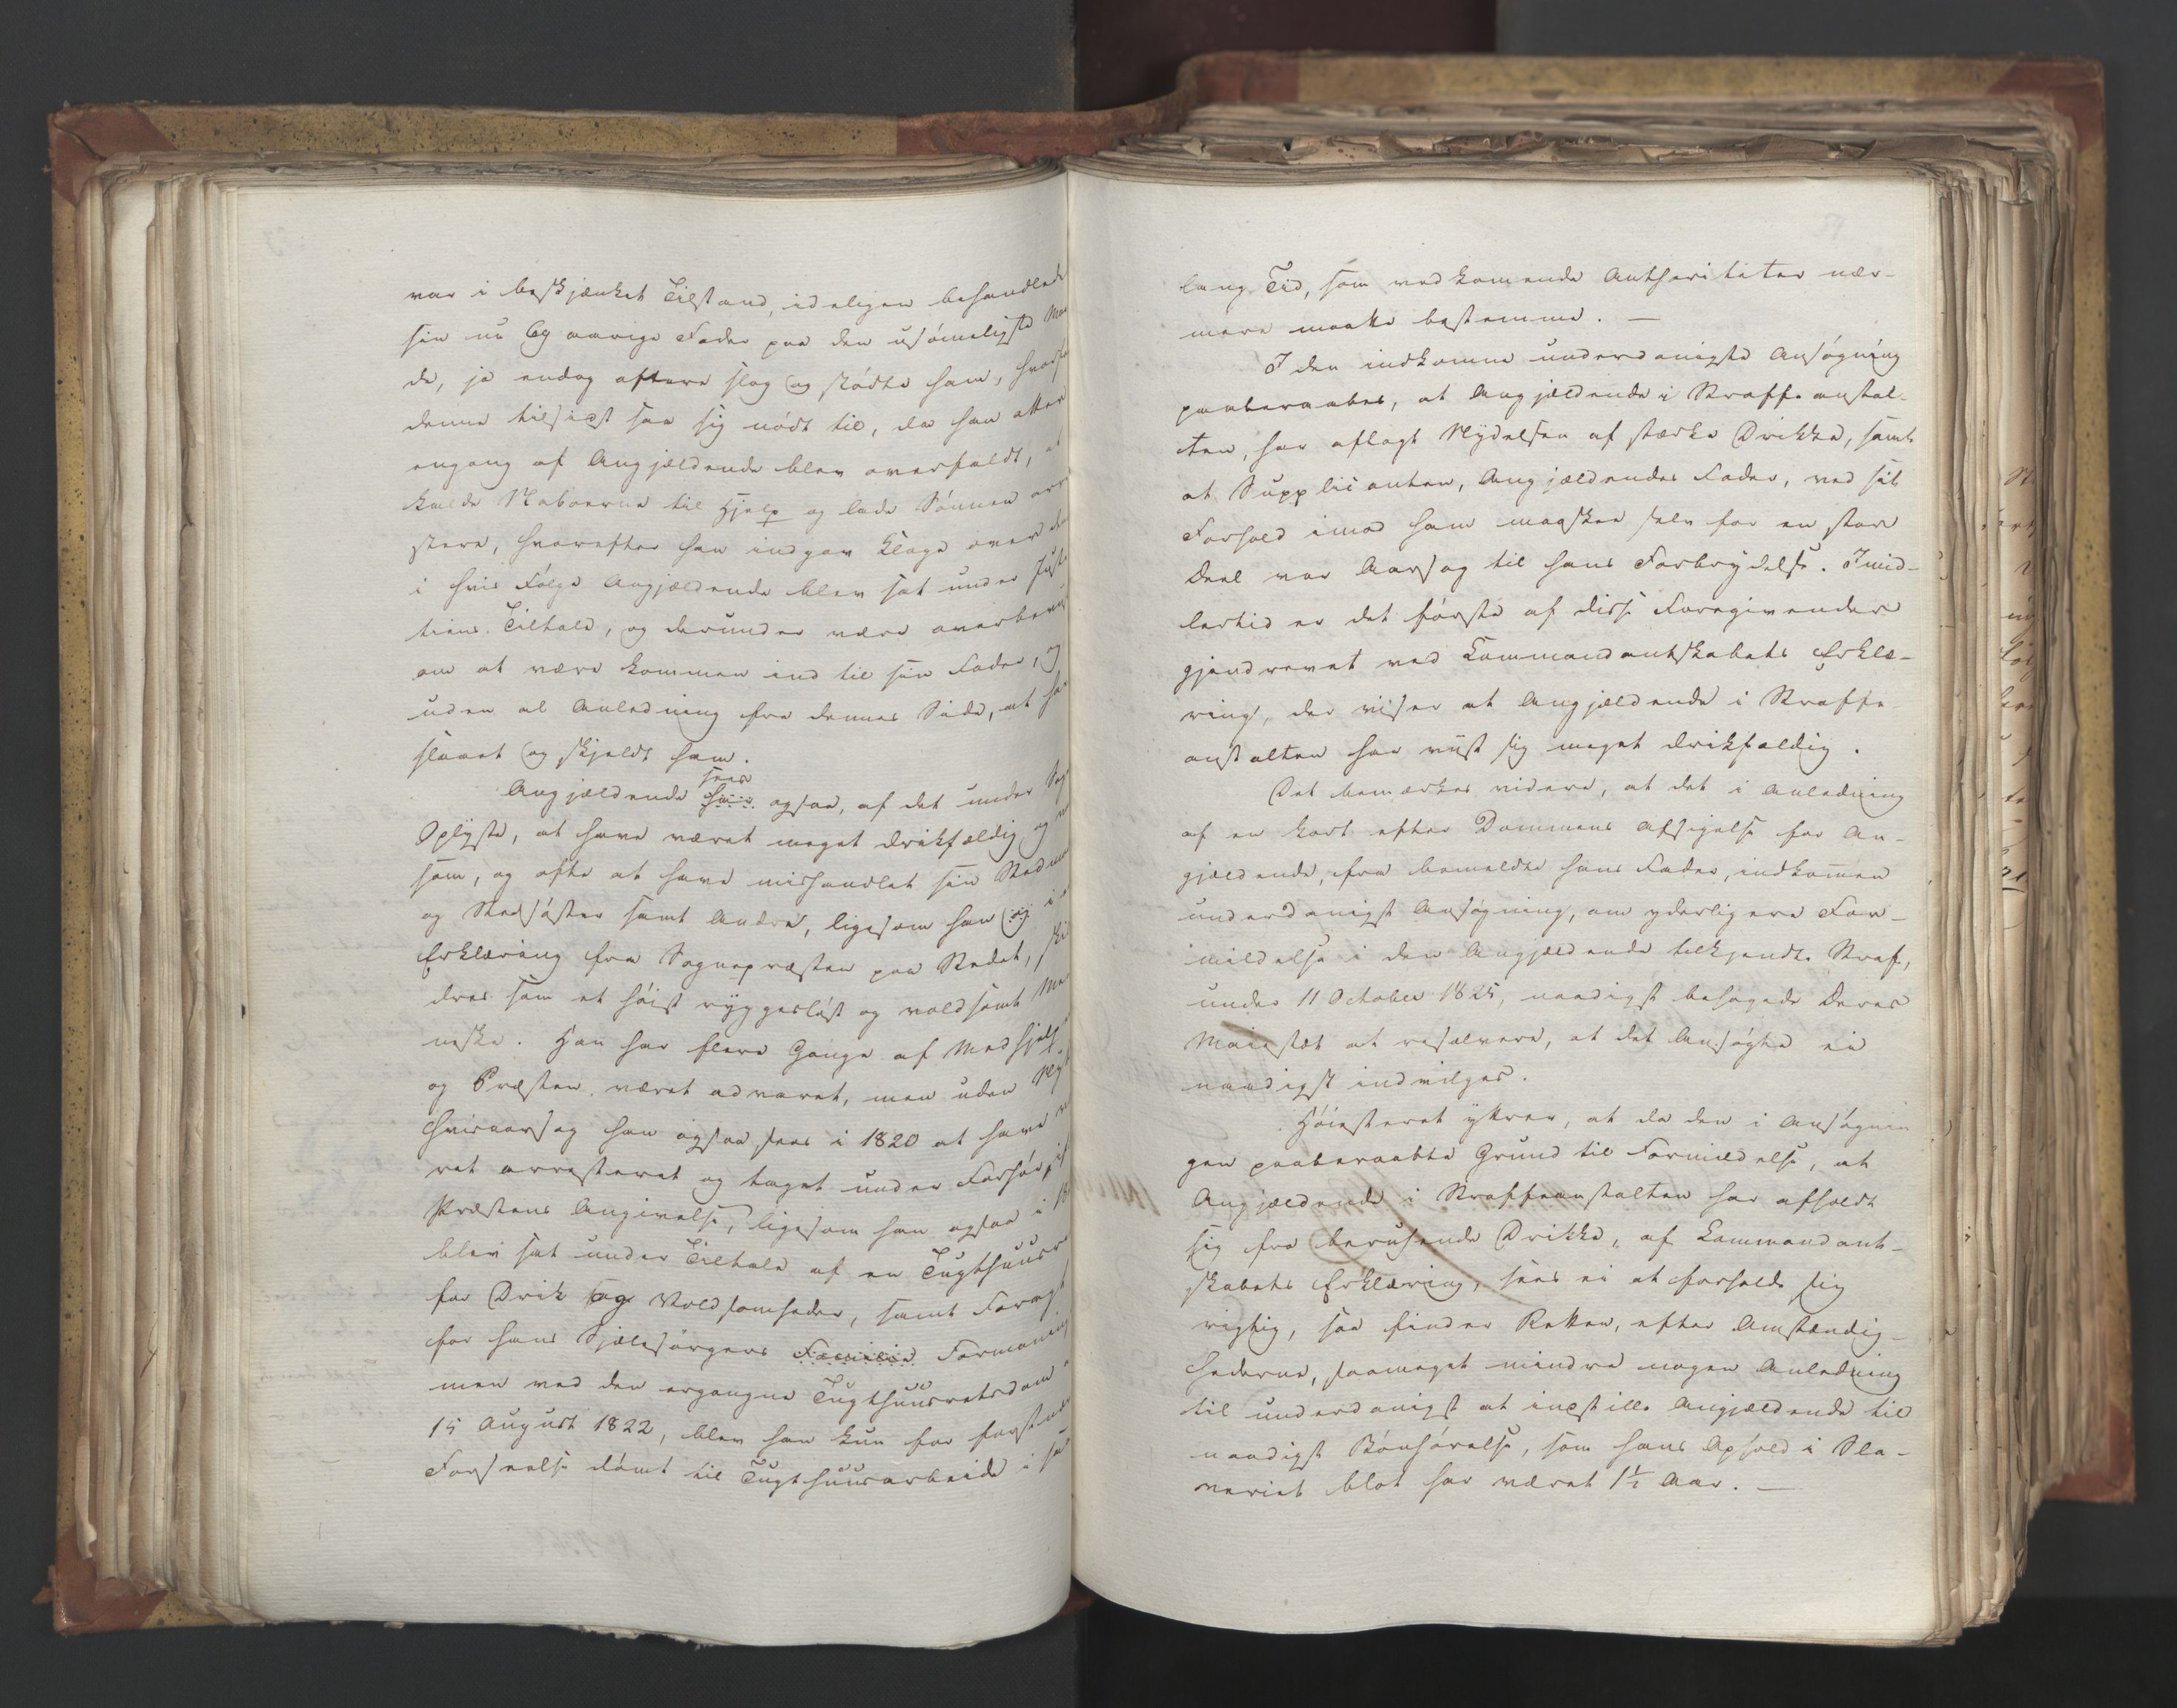 var i beskjænket Tilstand, ideligen behandlede
sin nu 69 aarige Fader paa den usømeligste Maa
de, ja endog oftere slog og stødte ham, hvorfor
denne tilsidst saa sig nødt til, da han atter
engang af Angjældende blev overfaldt, at
kalde Naboerne til Hjelp og lade Sønnen arre
stere, hvorefter han indgav Klage over den
i hvis Følge Angjældende blev sat under Justi
tiens Tiltale, og derunder være overbevist
om at være kommen ind til sin Fader, og
uden al Anledning fra dennes Side, at have
slaaet og skjeldt ham.
sees
Angjældende har ogsaa, af det under Sagen
Oplyste, at have været meget drikfældig og
som, og ofte at have mishandlet sin Stedmoder
og Stedsøster samt Andre, ligesom han og i
Erklæring fra Sognepræsten paa Stedet, skil
dres som et høist ryggesløst og voldsomt Me
neske. Han har flere Gange af Medhjelperne
og Præsten været advaret, men uden Nytte
hvisaarsag han ogsaa sees i 1820 at have væ
ret arresteret og taget under Forhør, if
Præstens Angivelse, ligesom han ogsaa i 18
blev sat under Tiltale af en Tugthuusret
for Drik og Voldsomheder, samt Foragt
for hans Sjælesørgers Formaning
men ved den ergangne Tugthuusretsdom
15 August 1822, blev han kun for førstnævnte
Forseelse dømt til Tugthuusarbeide i saa
lang Tid, som vedkomende Authoriteter nær-
mere maatte bestemme. —
I den indkomne underdanigste Ansøgning
paaberaabes, at Angjældende i Straffeanstal-
ten, har aflagt Nydelsen af stærke Drikke, samt
at Supplicanten, Angjældendes Fader, ved sit
Forhold imod ham maaskee selv for en stor
Deel var Aarsag til hans Forbrydelse. Imid-
lertid er det første af disse Foregivender
gjendrevet ved Commandantskabets Erklæ-
ring, der viser at Angjældende i Straffe
anstalten har viist sig meget drikfældig.
Det bemærkes videre, at det i Anledning
af en kort efter Dommens Afsigelse for An-
gjældende, fra bemeldte hans Fader, indkommen
underdanigst Ansøgning, om yderligere For-
mildelse i den Angjældende tilkjendte Straf,
under 11 October 1825, naadigst behagede Deres
Maiestæt at resolvere, at det Ansøgte ei
naadigst indvilges.
Høiesteret yttrer, at da den i Ansøgnin
gen paaberaabte Grund til Formildelse, at
Angjældende i Straffeanstalten har afholdt
sig fra berusende Drikke, af Commandant-
skabets Erklæring, sees ei at forholde sig
rigtig, saa finder Retten, efter Omstændig-
hederne, saameget mindre nogen Anledning
til underdanigst at indstille Angjældende til
naadigst Bønhørelse, som hans Ophold i Sla-
veriet blot har været 1½ Aar. —